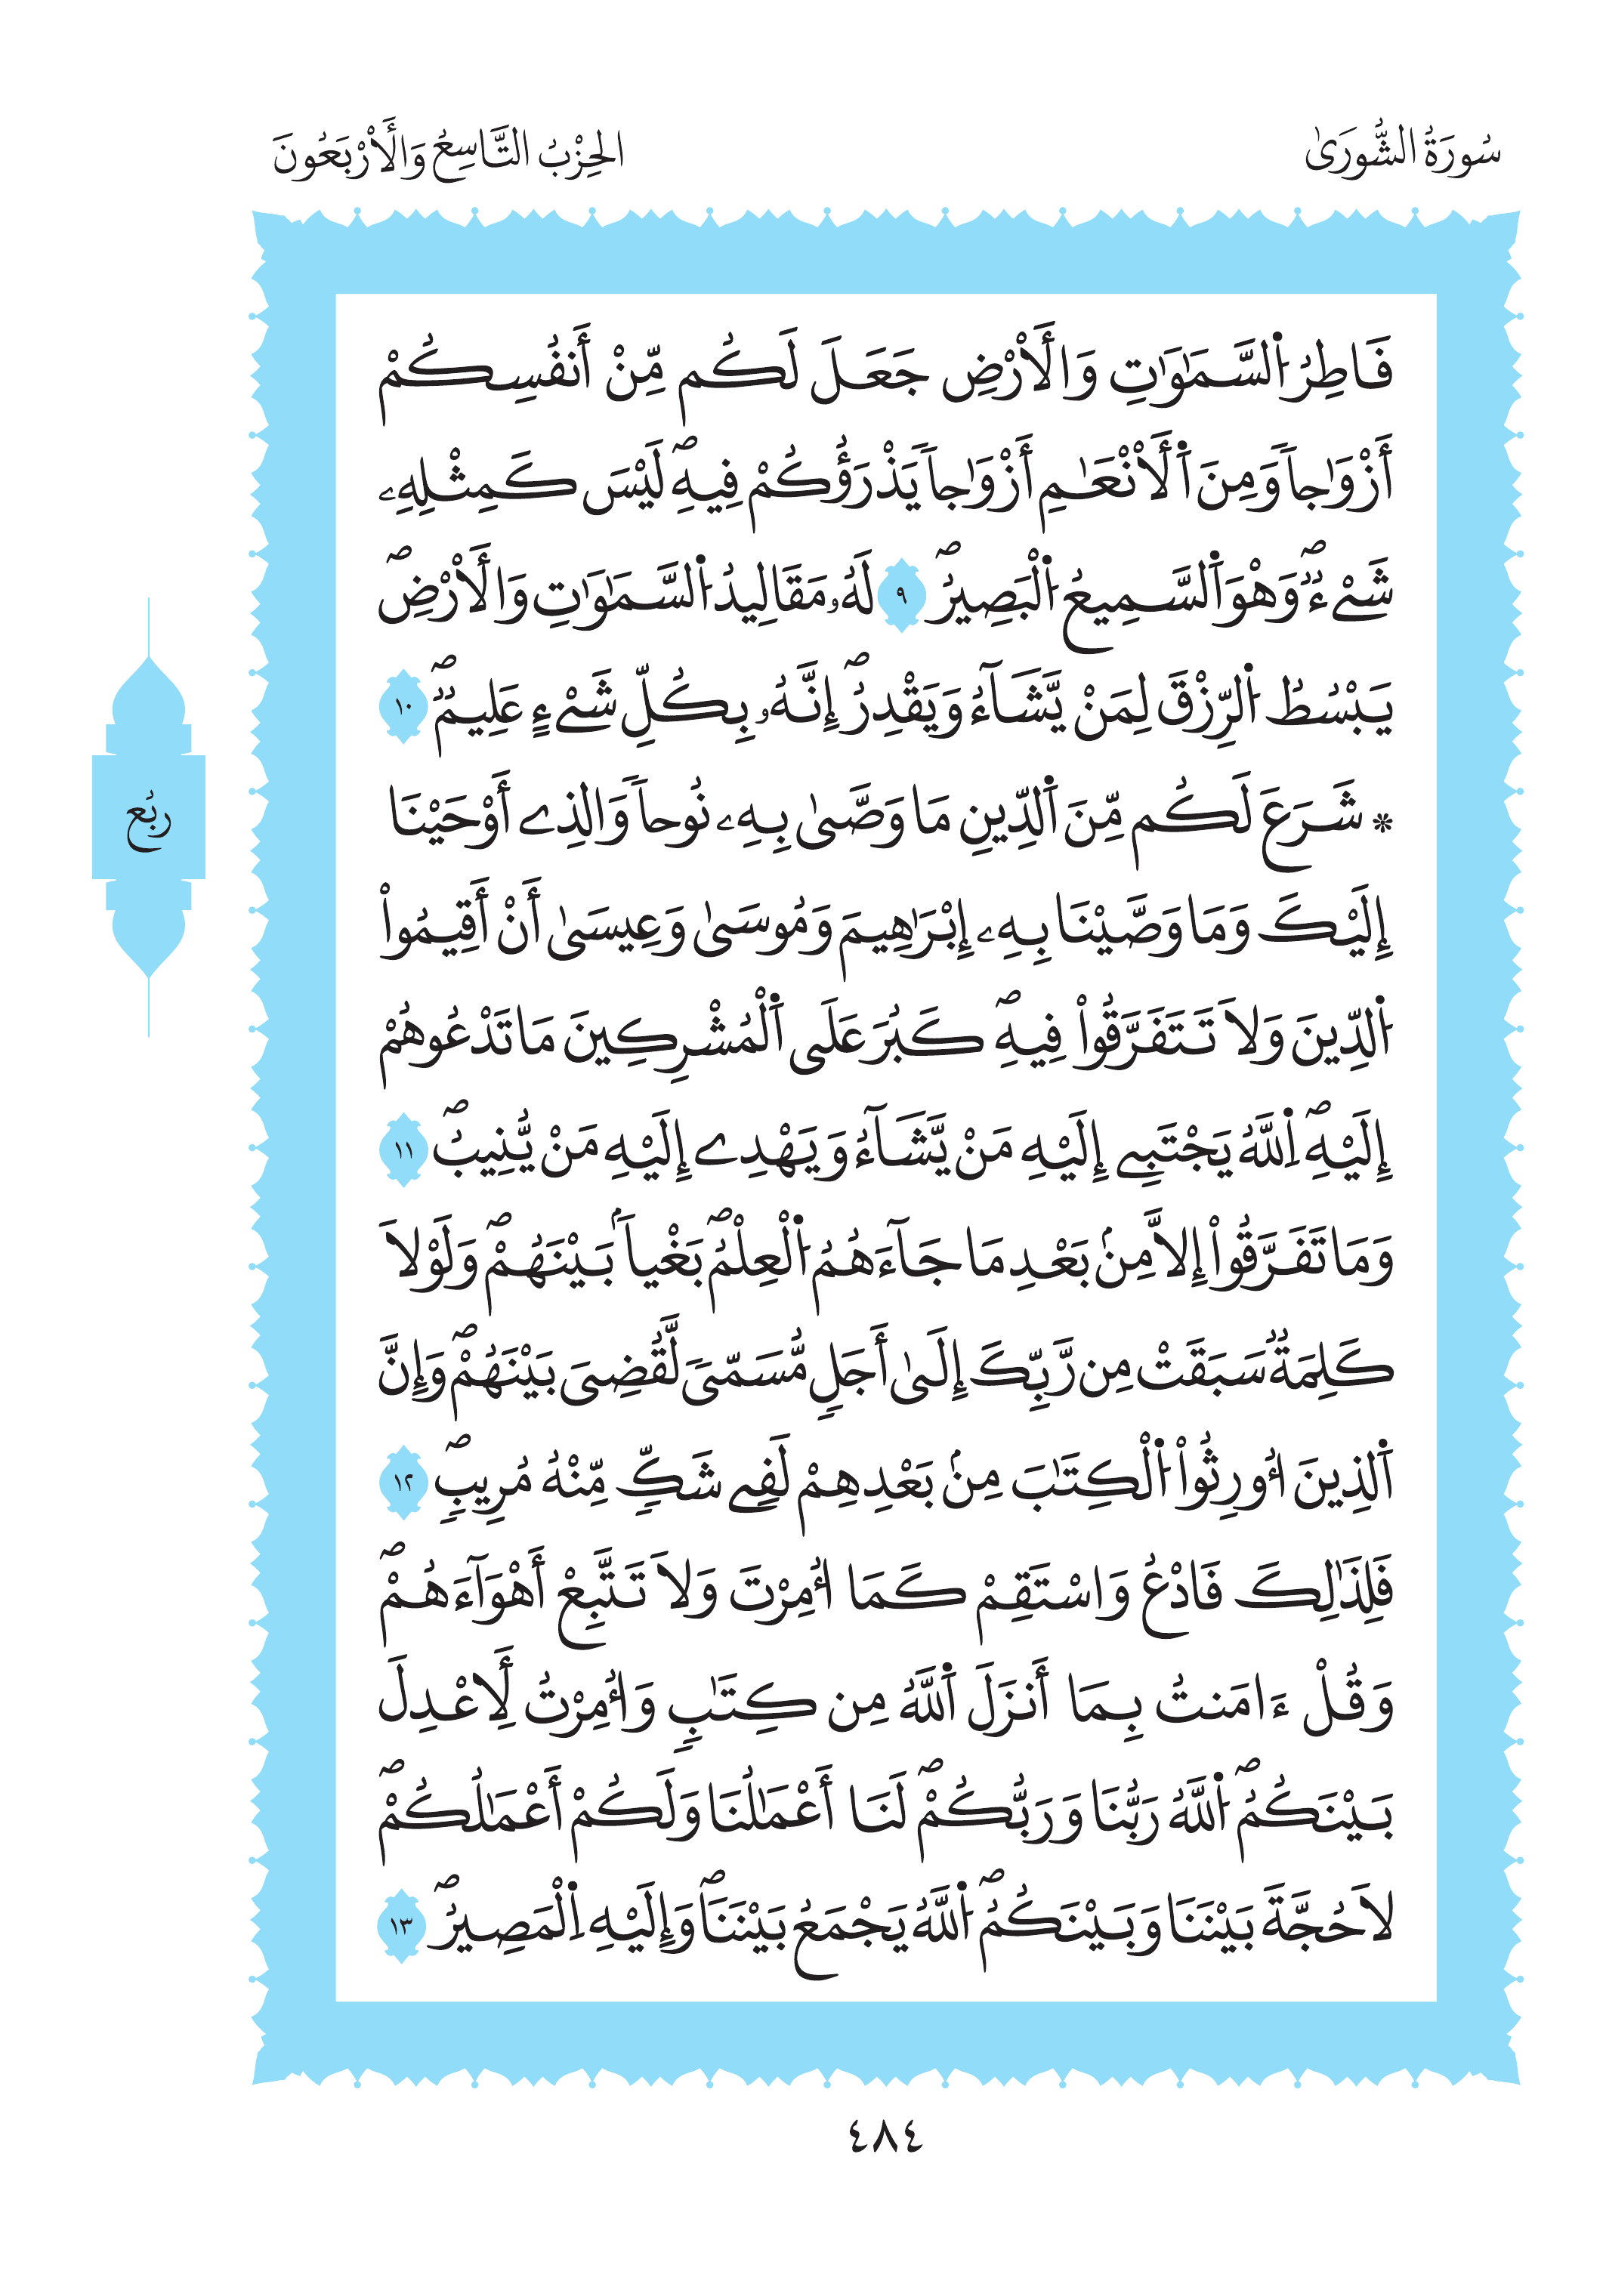 سُورَةُ الشُّورَىٰ
الحِزْبُ التَّاسِعُ وَالأَرْبَعُونَ
فَاطِرُ اُ۬لسَّمَٰوَٰتِ وَالَارْضِ جَعَلَ لَكُم مِّنْ أَنفُسِكُمْ
أَزْوَٰجاٗ وَمِنَ اَ۬لَانْعَٰمِ أَزْوَٰجاٗ يَذْرَؤُكُمْ فِيهِۖ لَيْسَ كَمِثْلِهِۦ
شَےْءٞۖ وَهْوَ اَ۬لسَّمِيعُ اُ۬لْبَصِيرُۖ ٩ لَهُۥ مَقَالِيدُ اُ۬لسَّمَٰوَٰتِ وَالَارْضِۖ
يَبْسُطُ اُ۬لرِّزْقَ لِمَنْ يَّشَآءُ وَيَقْدِرُۖ إِنَّهُۥ بِكُلِّ شَےْءٍ عَلِيمٞۖ ١٠
* شَرَعَ لَكُم مِّنَ اَ۬لدِّينِ مَا وَصَّىٰ بِهِۦ نُوحاٗ وَالذِے أَوْحَيْنَا
إِلَيْكَ وَمَا وَصَّيْنَا بِهِۦ إِبْرَٰهِيمَ وَمُوسَىٰ وَعِيسَىٰ أَنْ أَقِيمُواْ
اُ۬لدِّينَ وَلَا تَتَفَرَّقُواْ فِيهِۖ كَبُرَ عَلَى اَ۬لْمُشْرِكِينَ مَا تَدْعُوهُمْ
إِلَيْهِۖ اِ۬للَّهُ يَجْتَبِے إِلَيْهِ مَنْ يَّشَآءُ وَيَهْدِے إِلَيْهِ مَنْ يُّنِيبُۖ ١١
وَمَا تَفَرَّقُواْ إِلَّا مِنۢ بَعْدِ مَا جَآءَهُمُ اُ۬لْعِلْمُۖ بَغْياَۢ بَيْنَهُمْۖ وَلَوْلَا
كَلِمَةٞ سَبَقَتْ مِن رَّبِّكَ إِلَىٰ أَجَلٖ مُّسَمّىٗ لَّقُضِيَ بَيْنَهُمْۖ وَإِنَّ
اَ۬لذِينَ أُورِثُواْ اُ۬لْكِتَٰبَ مِنۢ بَعْدِهِمْ لَفِے شَكّٖ مِّنْهُ مُرِيبٖۖ ١٢
فَلِذَٰلِكَ فَادْعُ وَاسْتَقِمْ كَمَا أُمِرْتَ وَلَا تَتَّبِعْ أَهْوَآءَهُمْۖ
وَقُلْ ءَامَنتُ بِمَا أَنزَلَ اَ۬للَّهُ مِن كِتَٰبٖ وَأُمِرْتُ لِأَعْدِلَ
بَيْنَكُمُۖ اُ۬للَّهُ رَبُّنَا وَرَبُّكُمْۖ لَنَا أَعْمَٰلُنَا وَلَكُمْ أَعْمَٰلُكُمْۖ
لَا حُجَّةَ بَيْنَنَا وَبَيْنَكُمُۖ اُ۬للَّهُ يَجْمَعُ بَيْنَنَاۖ وَإِلَيْهِ اِ۬لْمَصِيرُۖ ١٣
ربُع
٤٨٤